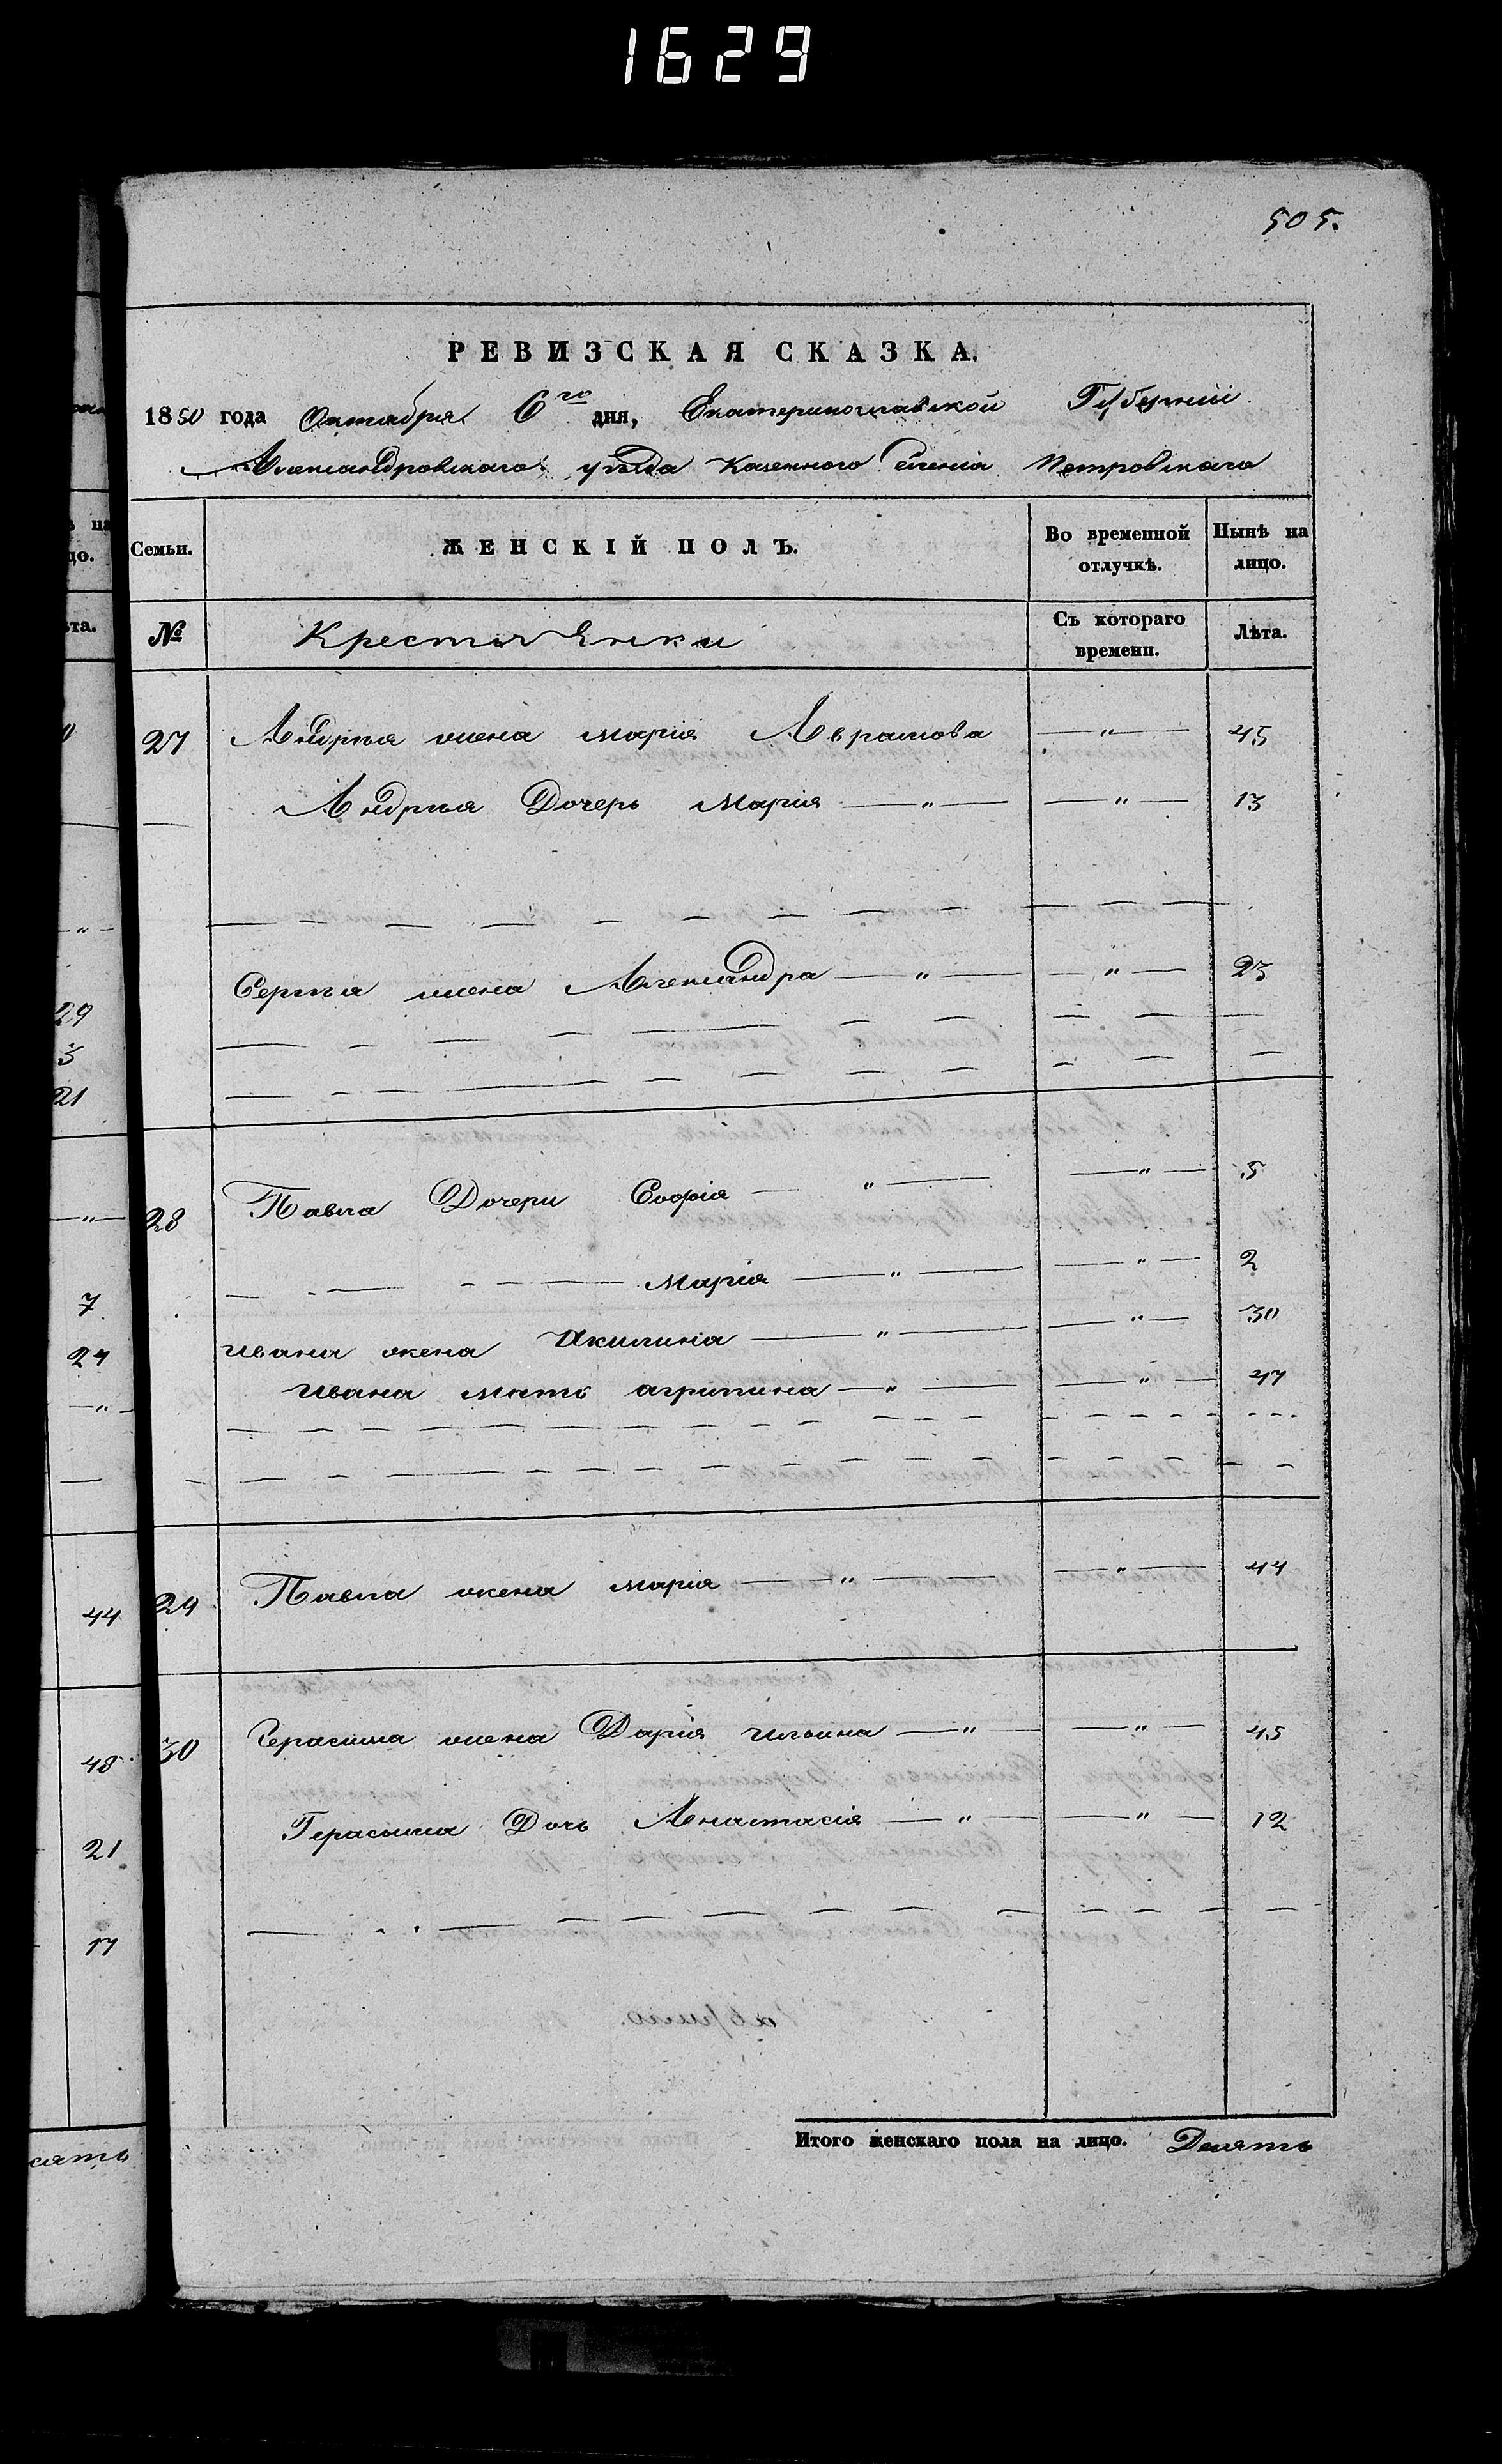 1629
505.
РЕВИЗСКАЯ СКАЗКА.
1850 года Октября 6го дня, Екатеринославской Губерніи
Александровскаго уѣзда Казенного Селенія Петровскаго
Семьи. ЖЕНСКІЙ ПОЛЪ. Во временной отлучкѣ. Нынѣ на лицо.
№ Крестьянки Съ котораго времени. Лѣта.
27 Андрѣя жена Марія Аврамова — „ — 45
Андрѣя Дочерь Марія — „ — — „ — 13
Сергѣя жена Александра — „ — — „ — 23
28 Павла Дочери Софія — „ — — „ — 5
Марія — „ — — „ — 2
Ивана жена Акилина — „ — — „ — 30
Ивана мать агрипина — „ — — „ — 47
29 Павла жена марія — „ — — „ — 44
30 Герасима жена Дарія Ильина — „ — — „ — 45
Герасима Дочь Анастасія — „ — — „ — 12
Итого женскаго пола на лицо. Десять
ъ на
цо.
ѣта.
29
3
21
7
27
44
48
21
17
сять